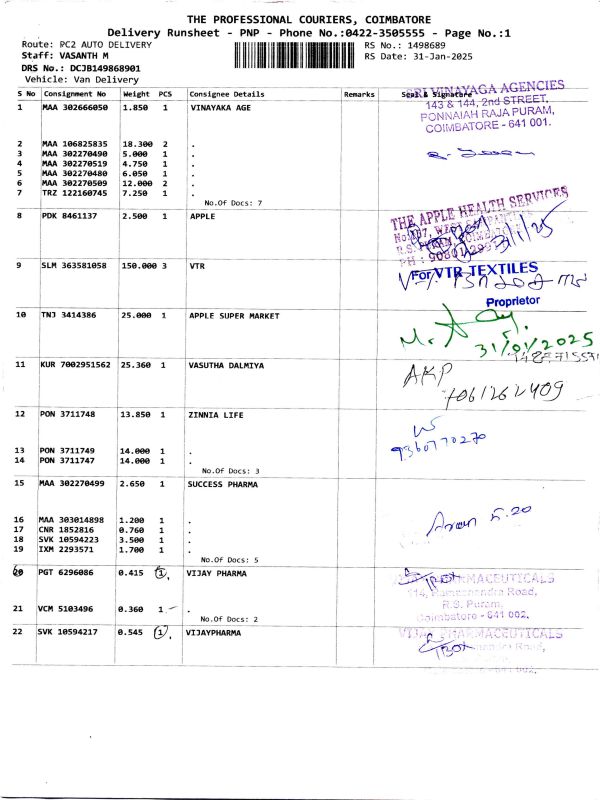 THE PROFESSIONAL COURIERS, COIMBATORE
Delivery Runsheet - PNP - Phone No.:0422-3505555 - Page No.:1
Route: PC2 AUTO DELIVERY
RS No.: 1498689
Staff: VASANTH M
RS Date: 31-Jan-2025
DRS No.: DCJB149868901
Vehicle: Van Delivery
S No Consignment No Weight PCS Consignee Details Remarks Seal & Signature
SRI VINAYAGA AGENCIES
143 & 144, 2nd STREET,
PONNAIAH RAJA PURAM,
COIMBATORE - 641 001.
1 MAA 302666050 1.850 1 VINAYAKA AGE
2 MAA 106825835 18.300 2 .
3 MAA 302270490 5.000 1 .
4 MAA 302270519 4.750 1 .
5 MAA 302270480 6.050 1 .
6 MAA 302270509 12.000 2 .
7 TRZ 122160745 7.250 1 .
No.Of Docs: 7
8 PDK 8461137 2.500 1 APPLE
THE APPLE HEALTH SERVICES
31/1/25
9 SLM 363581058 150.000 3 VTR
For VTR TEXTILES
Proprietor
10 TNJ 3414386 25.000 1 APPLE SUPER MARKET
31/01/2025
11 KUR 7002951562 25.360 1 VASUTHA DALMIYA
AKP
7061262409
12 PON 3711748 13.850 1 ZINNIA LIFE
9360770270
13 PON 3711749 14.000 1 .
14 PON 3711747 14.000 1 .
No.Of Docs: 3
15 MAA 302270499 2.650 1 SUCCESS PHARMA
16 MAA 303014898 1.200 1 .
17 CNR 1852816 0.760 1 .
18 SVK 10594223 3.500 1 .
19 IXM 2293571 1.700 1 .
No.Of Docs: 5
20 PGT 6296086 0.415 1 VIJAY PHARMA
PHARMACEUTICALS
114, Ramachandra Road,
R.S. Puram,
Coimbatore - 641 002.
21 VCM 5103496 0.360 1 .
No.Of Docs: 2
22 SVK 10594217 0.545 1 VIJAYPHARMA
VIJAY PHARMACEUTICALS